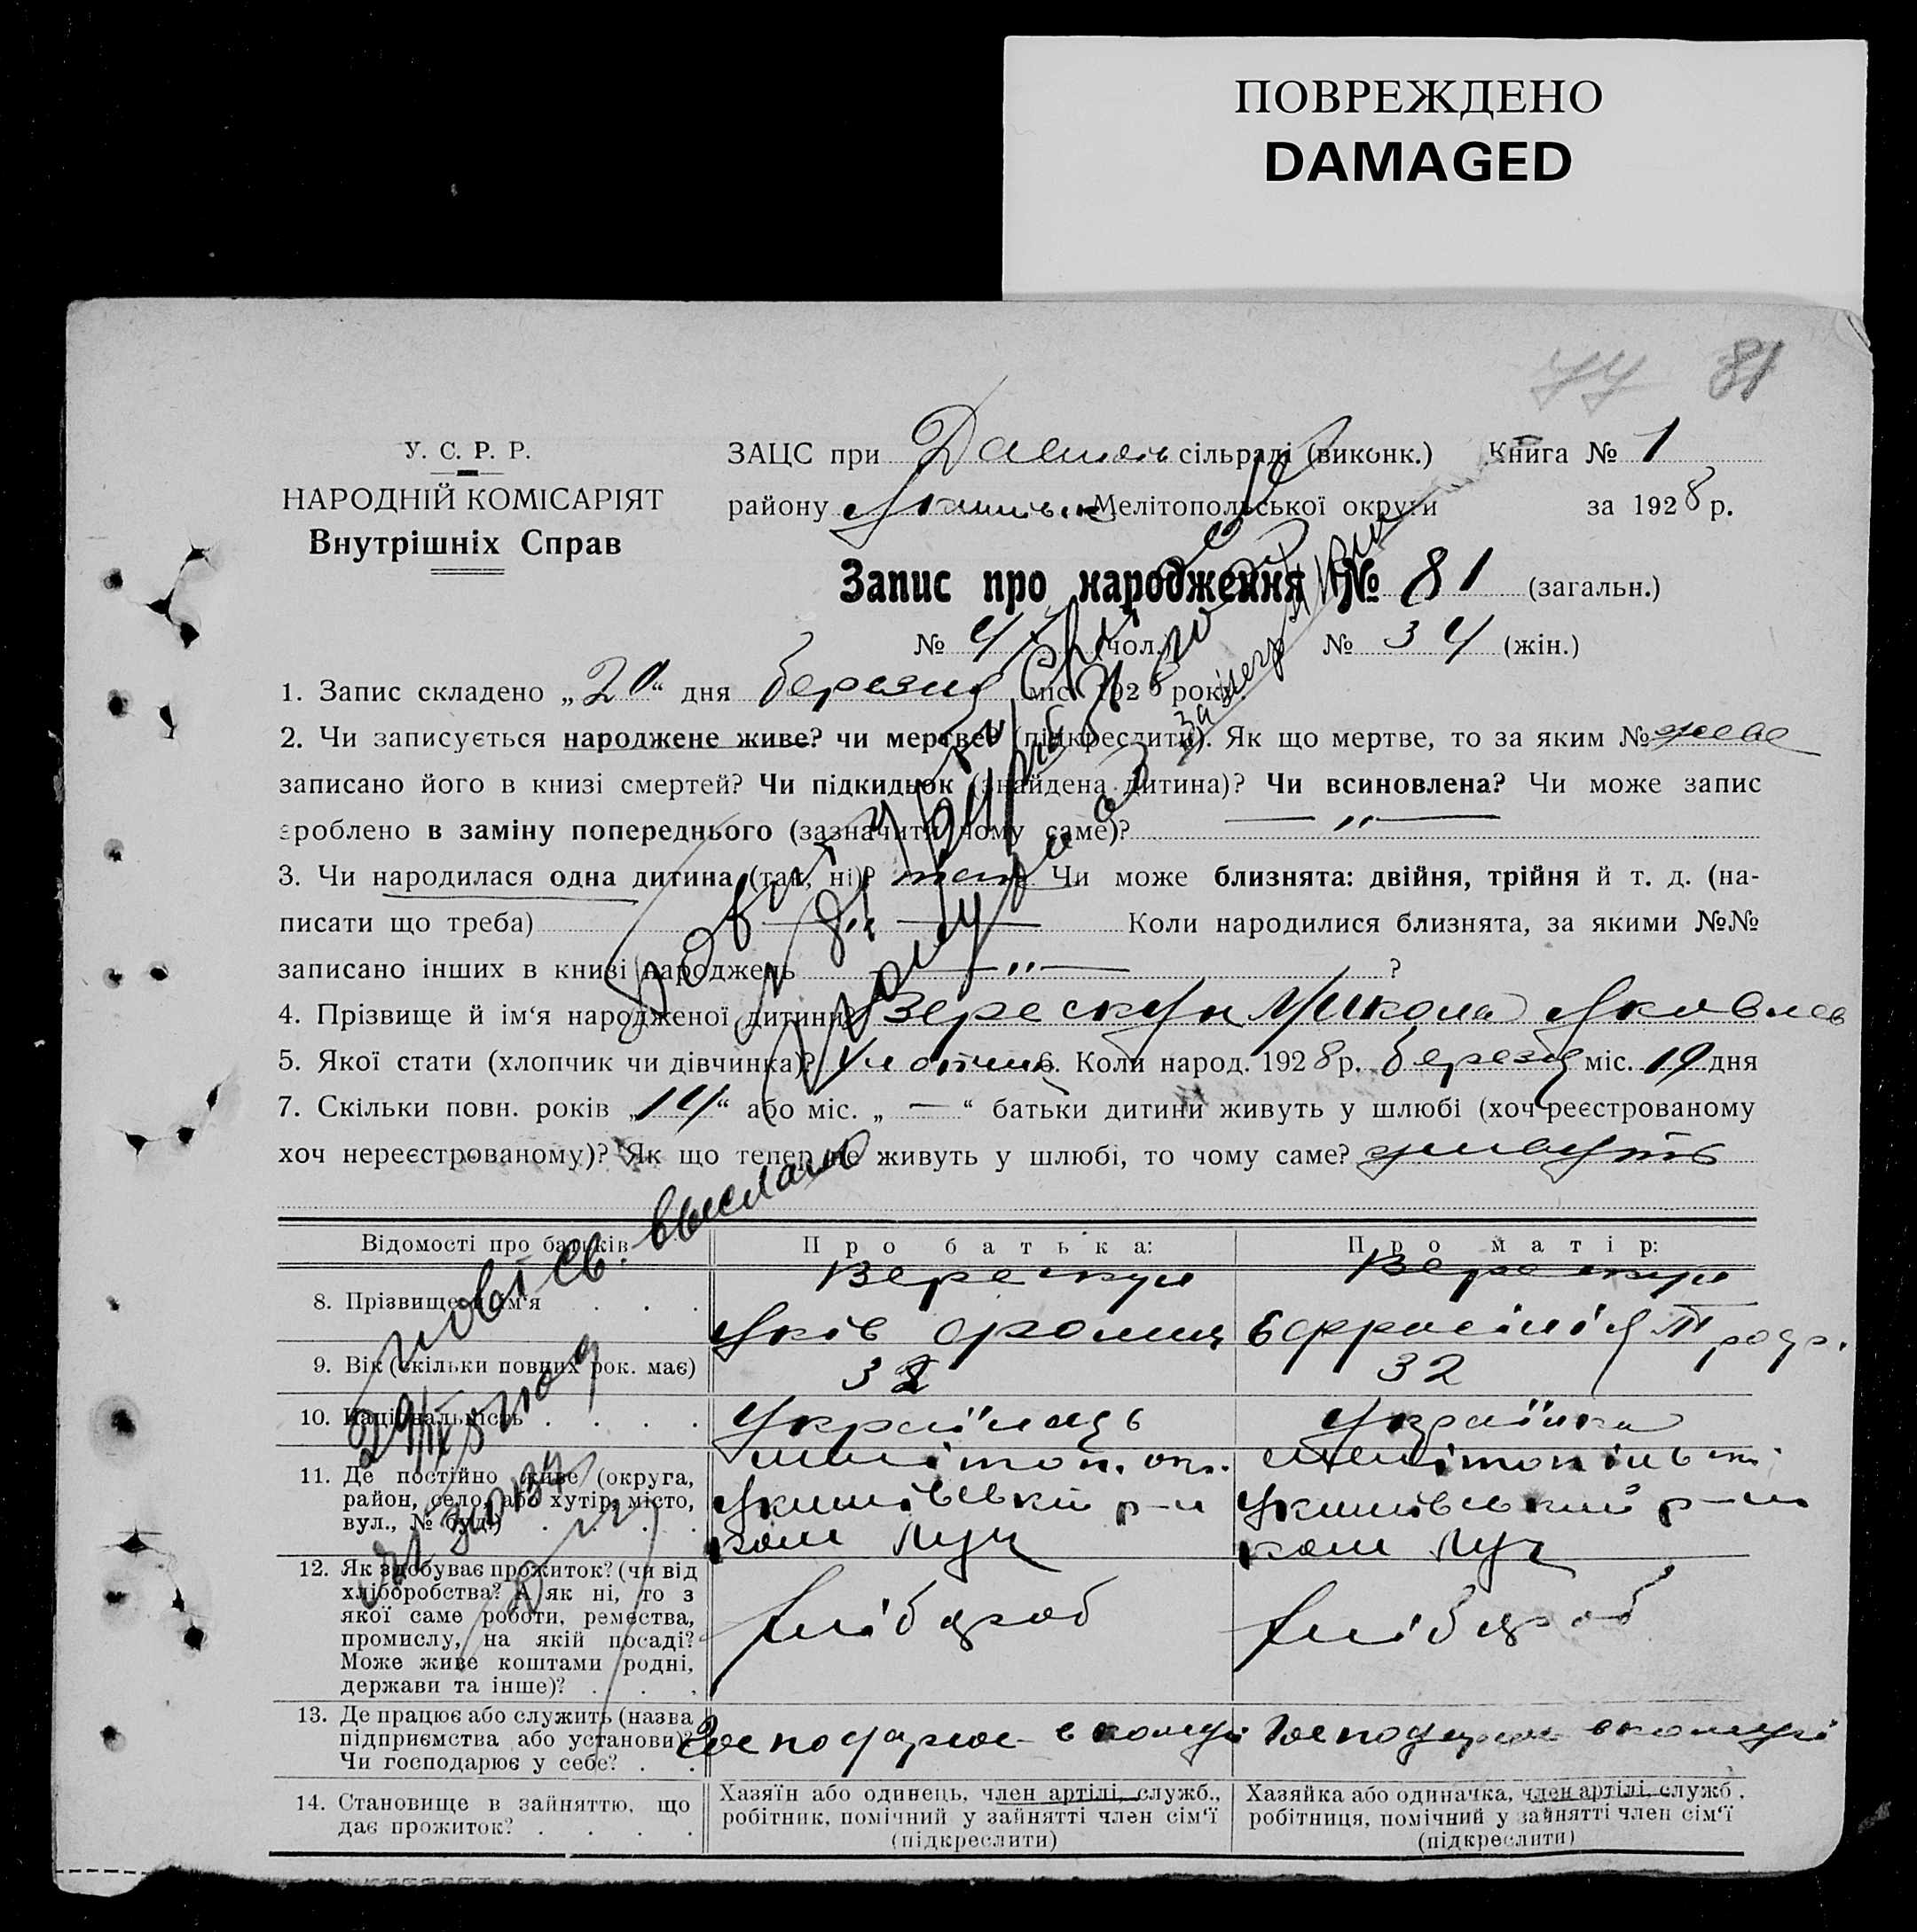 ПОВРЕЖДЕНО
DAMAGED
77 81
У. С. Р. Р.
НАРОДНІЙ КОМІСАРІЯТ
Внутрішніх Справ
ЗАЦС при сільраді (виконк.) Книга № 1
району Мелітопольської округи за 1928 р.
Запис про народження № 81 (загальн.)
№ 47 (чол.) № 34 (жін.)
1. Запис складено „20“ дня березня міс. 1928 року
2. Чи записується народжене живе? чи мертве? (підкреслити). Як що мертве, то за яким № живе
записано його в книзі смертей? Чи підкидьок (знайдена дитина)? Чи всиновлена? Чи може запис
зроблено в заміну попереднього (зазначити чому саме)? — „ —
3. Чи народилася одна дитина (так, ні)? так Чи може близнята: двійня, трійня й т. д. (на-
писати що треба) — „ — Коли народилися близнята, за якими №№
записано інших в книзі народжень — „ — ?
4. Прізвище й ім‘я народженої дитини? Верескун Микола Яковлев
5. Якої стати (хлопчик чи дівчинка)? Хлопчик 6. Коли народ. 1928 р. березня міс. 19 дня
7. Скільки повн. років „14“ або міс. „ — “ батьки дитини живуть у шлюбі (хоч реєстрованому
хоч нереєстрованому)? Як що тепер не живуть у шлюбі, то чому саме? живуть
Відомості про батьків Про батька: Про матір:
8. Прізвище й ім‘я . . . Верескун Верескун
Яків Єфросінія
9. Вік (скільки повних рок. має) 32 32
10. Національність . . . . Українець Українка
11. Де постійно живе (округа, район, село, або хутір, місто, вул., № буд.) . . . . Мелітоп. окр. Мелітопільськ
Якимівський р-н Якимівський р-н
ком Луч ком Луч
12. Як здобуває прожиток? (чи від хліборобства? А як ні, то з якої саме роботи, ремества, промислу, на якій посаді? Може живе коштами родні, держави та інше)? . . . хлібороб хлібороб
13. Де працює або служить (назва підприємства або установи)? Чи господарює у себе? . . Господарює в комуні Господарює в комуні
14. Становище в зайняттю, що дає прожиток? . . . .
Хазяїн або одинець, член артілі, служб., робітник, помічний у зайнятті член сім‘ї (підкреслити)
Хазяйка або одиначка, член артілі, служб. робітниця, помічний у зайнятті член сім‘ї (підкреслити)
нові св. выслано